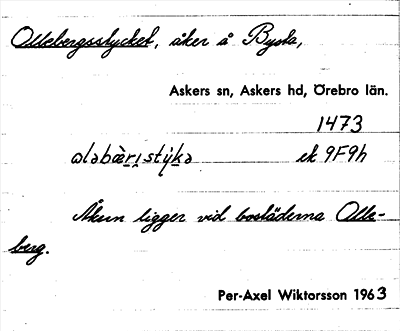 Ollebergsstycket, åker å Bysta,
Askers sn, Askers hd, Örebro län.
1473
ek 9F9h
Åkern ligger vid bostäderna Olle-
berg.
Per-Axel Wiktorsson 1963